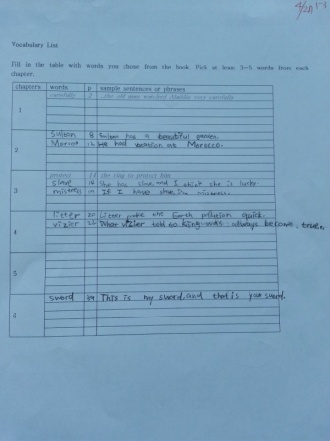 Vocabulary List
Fill in the table with words you chose from the book. Pick at least 3~5 words from each
chapter.
chapters words p sample sentences or phrases
carefully the old man watched Aladdin very carefully
1
Sultan 8 Sultan has a beautiful garden.
2 12 He had vacation at Morocco.
protect 11 the ring to protect him
3 slave 14 She has slave and I think she is lucky.
mistress 19 If I have slave, I'm mistress.
litter 20 Litter make the Earth pollution quick.
4 vizier 22 What vizier told to king was always become true.
5
sword This is my sword, and that is your sword.